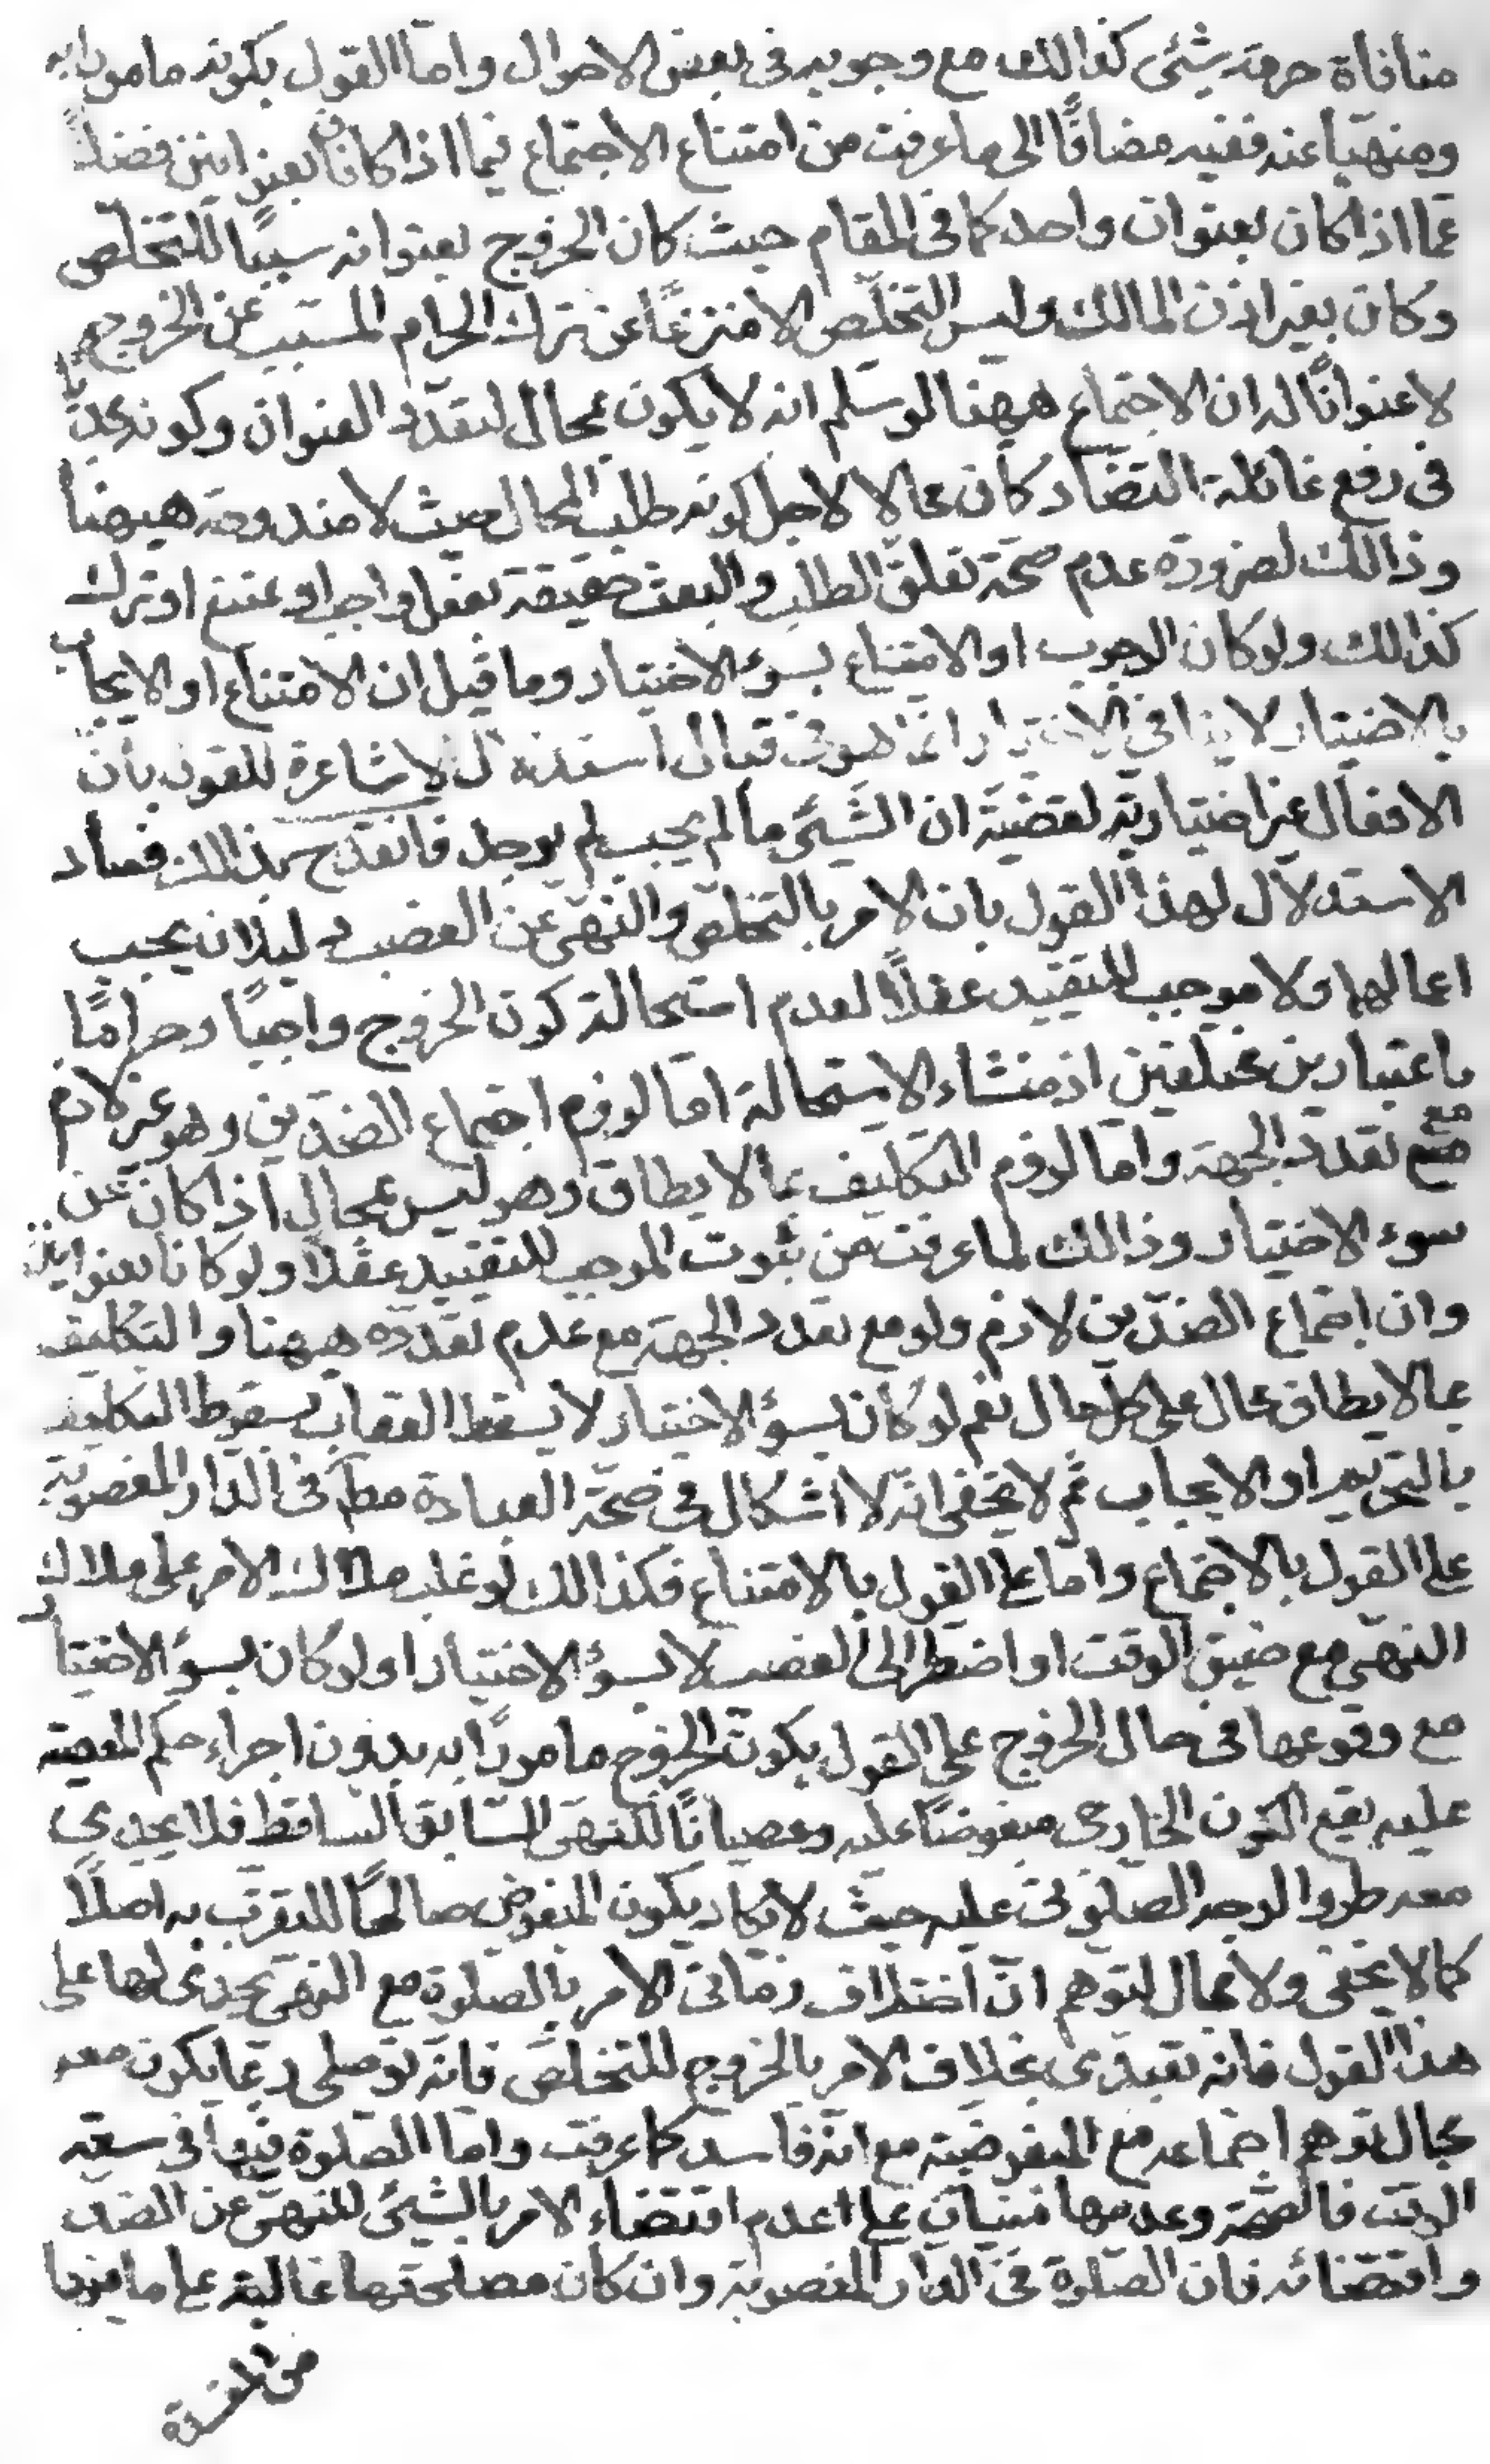 منافاة حرمة شئى كذالك مع وجوبه فى بعض الاحوال واما القول بكونه مامورا به
ومنهيا عنه ففيه مضافًا الى ما عرفت من امتناع الاجتماع فيما اذا كانا بعنوانين فضلاً
عما اذا كان بعنوان واحد كما فى المقام حيث كان الخروج بعنوانه سببًا للتخلص
وكان بغير اذن المالك وليس التخلّص الا منتزعًا عن ترك الحرام المسبب عن الخروج
لا عنوانًا له ان الاجتماع ههنا لو سلم انه لا يكون بمحال لتعدد العنوان وكونه مجديًا
فى رفع غائلة التضاد كان محالا لاجل كونه طلب المحال حيث لا مندوحة هيهنا
وذالك لضرورة عدم صحّة تعلق الطلب والبعث حقيقة بفعل واجب او ممتنع او ترك
كذالك ولو كان الوجوب او الامتناع بسوء الاختيار وما قيل ان الامتناع او الايجاب
بالاختيار لا ينافى الاختيار انما هو فى قبال استدلال الاشاعرة للقول بان
الافعال غير اختيارية لقضية ان الشئى ما لم يجب لم يوجد فانقدح بذالك فساد
الاستدلال لهذا القول بان الامر بالتخلص والنهى عن الغصب دليلان يجب
اعمالهما ولا موجب للتقييد عقلاً لعدم استحالة كون الخروج واجبًا وحرامًا
باعتبارين مختلفين اذ منشاء الاستحالة اما لزوم اجتماع الضدّين وهو غير لازم
مع تعدد الجهة واما لزوم التكليف بما لا يطاق وهو ليس بمحال اذا كان عن
سوء الاختيار وذالك لما عرفت من ثبوت الموجب للتقييد عقلا ولو كانا بعنوانين
وان اجتماع الضدّين لازم ولو مع تعدد الجهة مع عدم تعدده هيهنا والتكليف
بما لا يطاق محال على كل حال نعم لو كان بسوء الاختيار لا يسقط العقاب بسقوط التكليف
بالتحريم او الايجاب ثم لا يخفى انه لا اشكال فى صحّة العبادة مط فى الدار المغصوبة
على القول بالاجتماع واما على القول بالامتناع فكذالك لو غلب ملاك الامر على ملاك
النهى مع ضيق الوقت او اضطر الى الغصب لا بسوء الاختيار او لو كان بسوء الاختيار
مع وقوعها فى حال الخروج على القول بكون الخروج مامورًا به بدون اجراء حكم المعصية
عليه يقع الكون الخارجى مبغوضًا عليه وعصيانًا للنهى السابق الساقط فلا يجدى
معه طرو الوجه الصلوتى عليه حيث لا يكاد يكون المبغوض صالحًا للتقرب به اصلاً
كما لا يخفى ولا مجال لتوهم انّ اختلاف زمانى الامر بالصلوة مع النهى يجدى لها على
هذا القول فانه تعبدى بخلاف الامر بالخروج للتخلص فانّه توصلى ربما يكون معه
مجال توهم اجتماعه مع المبغوضية مع انه فاسد كما عرفت واما الصلوة فيها فى سعة
الوقت فالصحّة وعدمها مبنيان على عدم اقتضاء الامر بالشيئى للنهى عن الضد
واقتضائه فان الصلوة فى الدار المغصوبة وان كان مصلحتها غالبة على ما فيها
من المفسدة